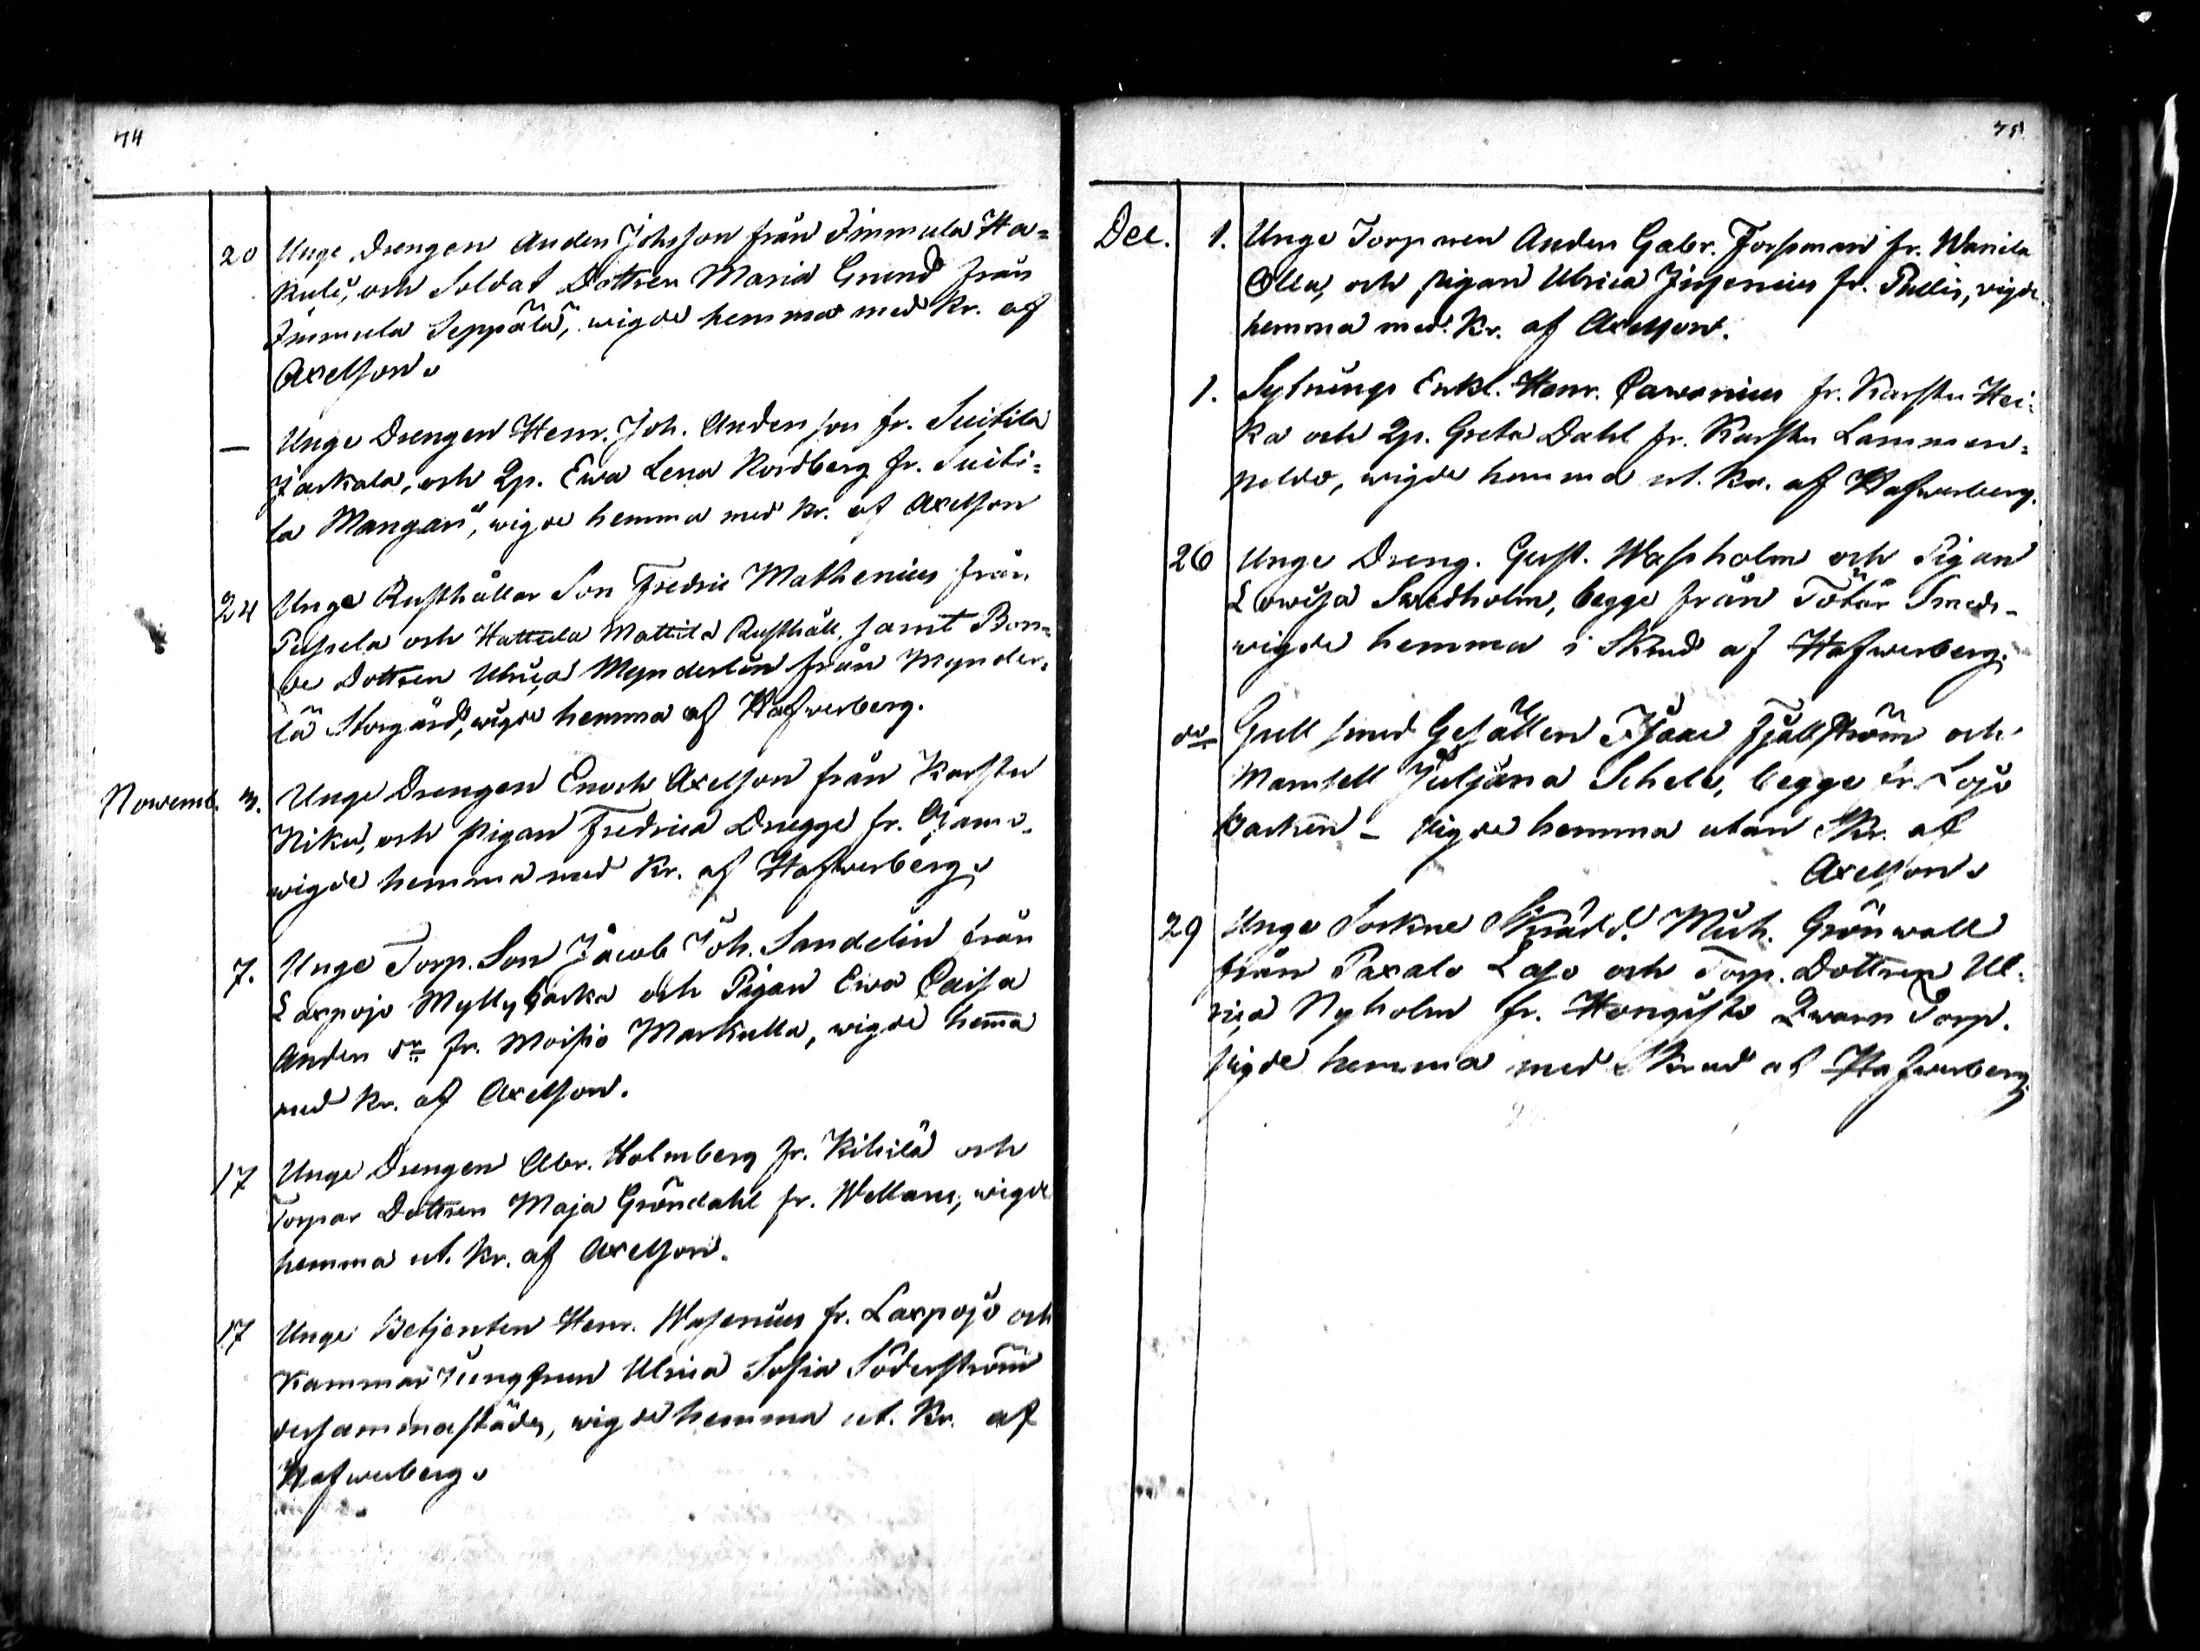 74
20 Unge Drengen Anders Johsson från Immula Ha=
kuli, och Soldat Dottren Maria Grund från
Immula Seppälä, wigde hemma med Kr. af
Axelsson.
— Unge Drengen Henr. Joh. Andersson fr. Suitila
Jaakala, och Qp. Ewa Lena Nordberg fr. Suiti=
la Mangars, wigde hemma med Kr. af Axelsson
24 Unge Rusthållar Son Fredric Mathenius från
och Hattula Mattila Rusthåll, samt Bon=
de Dottren Ulrica Mynderlin från Mynder=
lä Storgård, wigde hemma af Hafwerberg.
Nowemb. 3. Unge Drengen Enoch Axelsson från Karstu
Niku, och pigan Fredrica Drugge fr. Ojamo,
wigde hemma med Kr. af Hafwerberg.
7. Unge Torp. Son Jacob Joh. Sandelin från
Laxpojo Myllybacka och Pigan Ewa Caisa
Anders dr fr. Moisio Markulla, wigde hemma
med Kr. af Axelsson.
17 Unge Drengen Abr. Holmberg fr. Kihilä och
Torpar Dottren Maja Gröndahl fr. Wellars, wigde
hemma ut. Kr. af Axelsson.
17 Unge Betjenten Henr. Wasenius fr. Laxpojo och
Kammar Jungfrun Ulrica Sofia Söderström
dersammastädes, wigde hemma ut. Kr. af
Hafwerberg.
75
Dec. 1. Unge Torparen Anders Gabr. Forsman fr. Wanila
Olla, och pigan Ulrica fr. Pullis, wigde
hemma med Kr. af Axelsson.
1. Sytnings Enkl. Henr. Pawonius fr. Karstu Hei=
ka och Qp. Greta Dahl fr. Karstu Lammen=
peldo, wigde hemma ut. Kr. af Hafwerberg.
26 Unge Dreng. Gust. Wassholm och Pigan
Lowisa Swedholm, begge från Tötar Smeds-
wigde hemma i Skrud af Hafwerberg.
do Gull smed Gesällen Isaac Fjellström och
Mamsell Juljana Schele, begge fr. Lojo
Backen - wigde hemma utan Skr. af
Axelsson.
29 Unge Sockne Skrädd. Mich. Grönwall
från Paxalo Lojo och Torp. Dottren Ul=
rica Nyholm fr. Hongisto Qwarn Torp.
wigde hemma med Skrud af Hafwerberg.